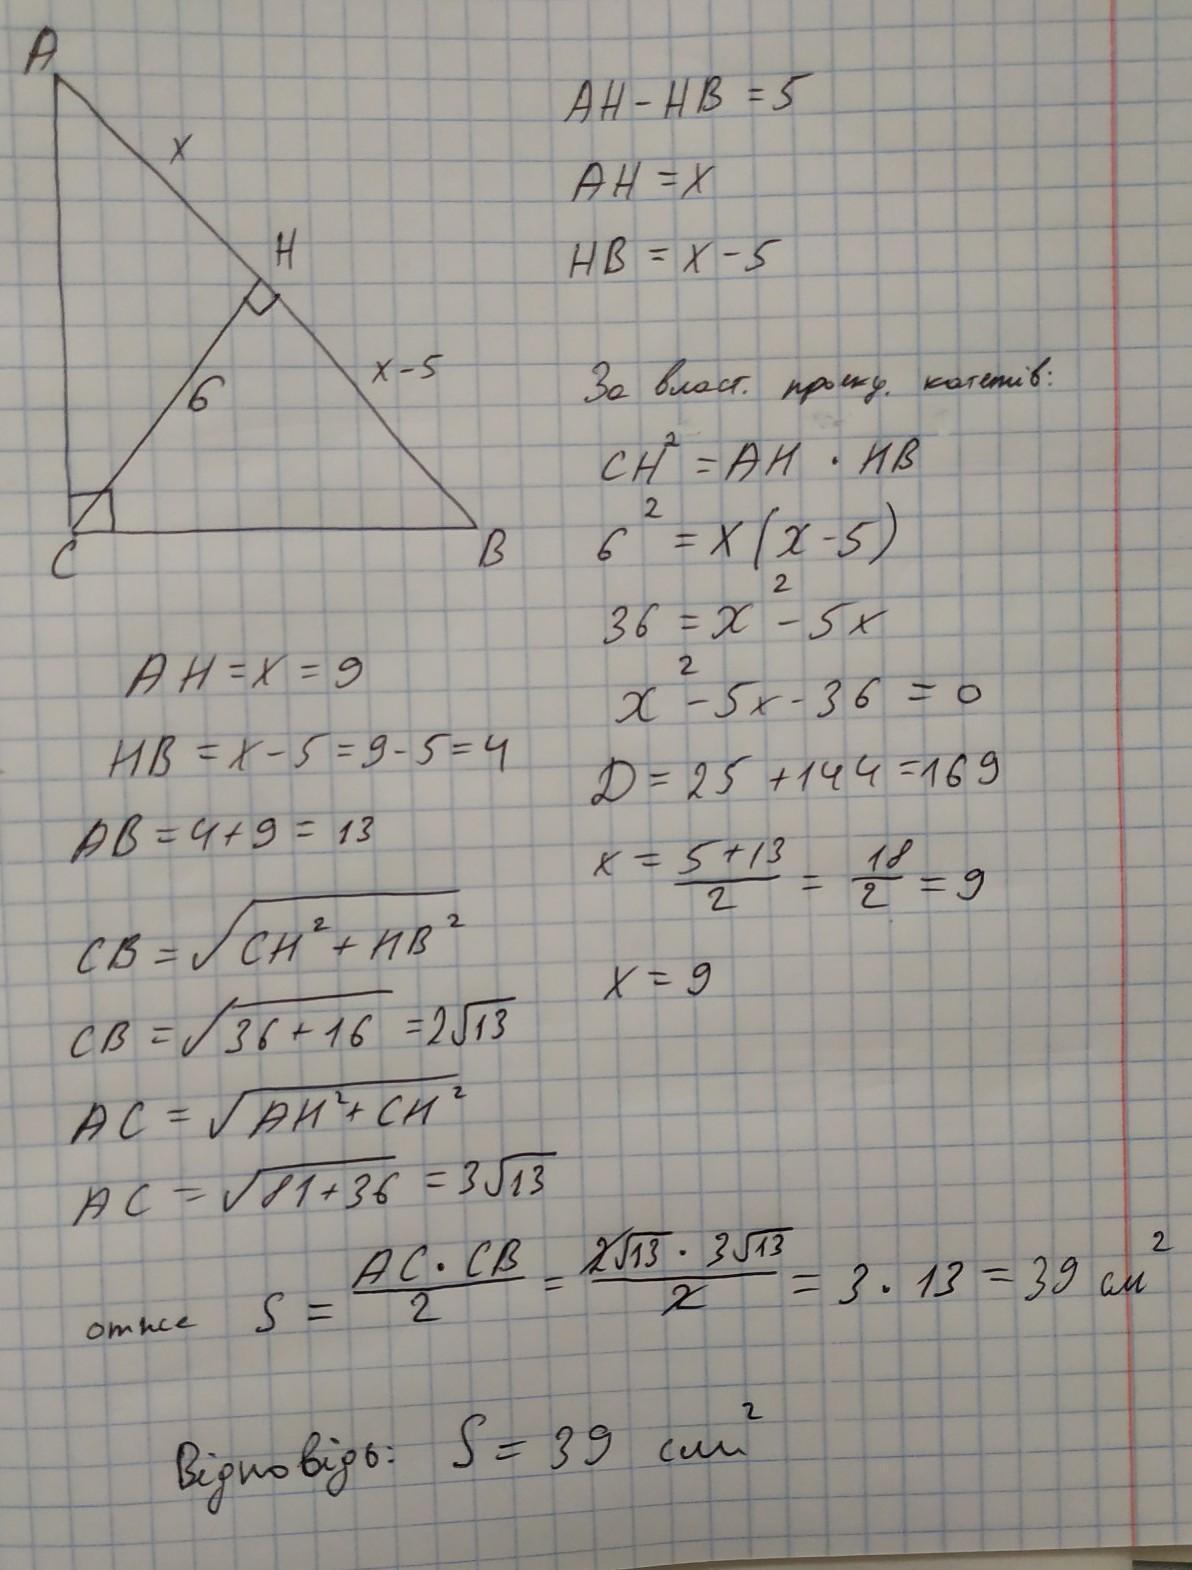 A
x
H
x-5
6
C
B
AH-HB=5
AH=x
HB=x-5
За власт. проекц. катетів:
CH²=AH·HB
6²=x(x-5)
36=x²-5x
x²-5x-36=0
D=25+144=169
x=(5+13)/2=18/2=9
x=9
AH=x=9
HB=x-5=9-5=4
AB=4+9=13
CB=√(CH²+HB²)
CB=√(36+16)=2√13
AC=√(AH²+CH²)
AC=√(81+36)=3√13
отже S=(AC·CB)/2=(2√13·3√13)/2=3·13=39 см²
Відповідь: S=39 см²